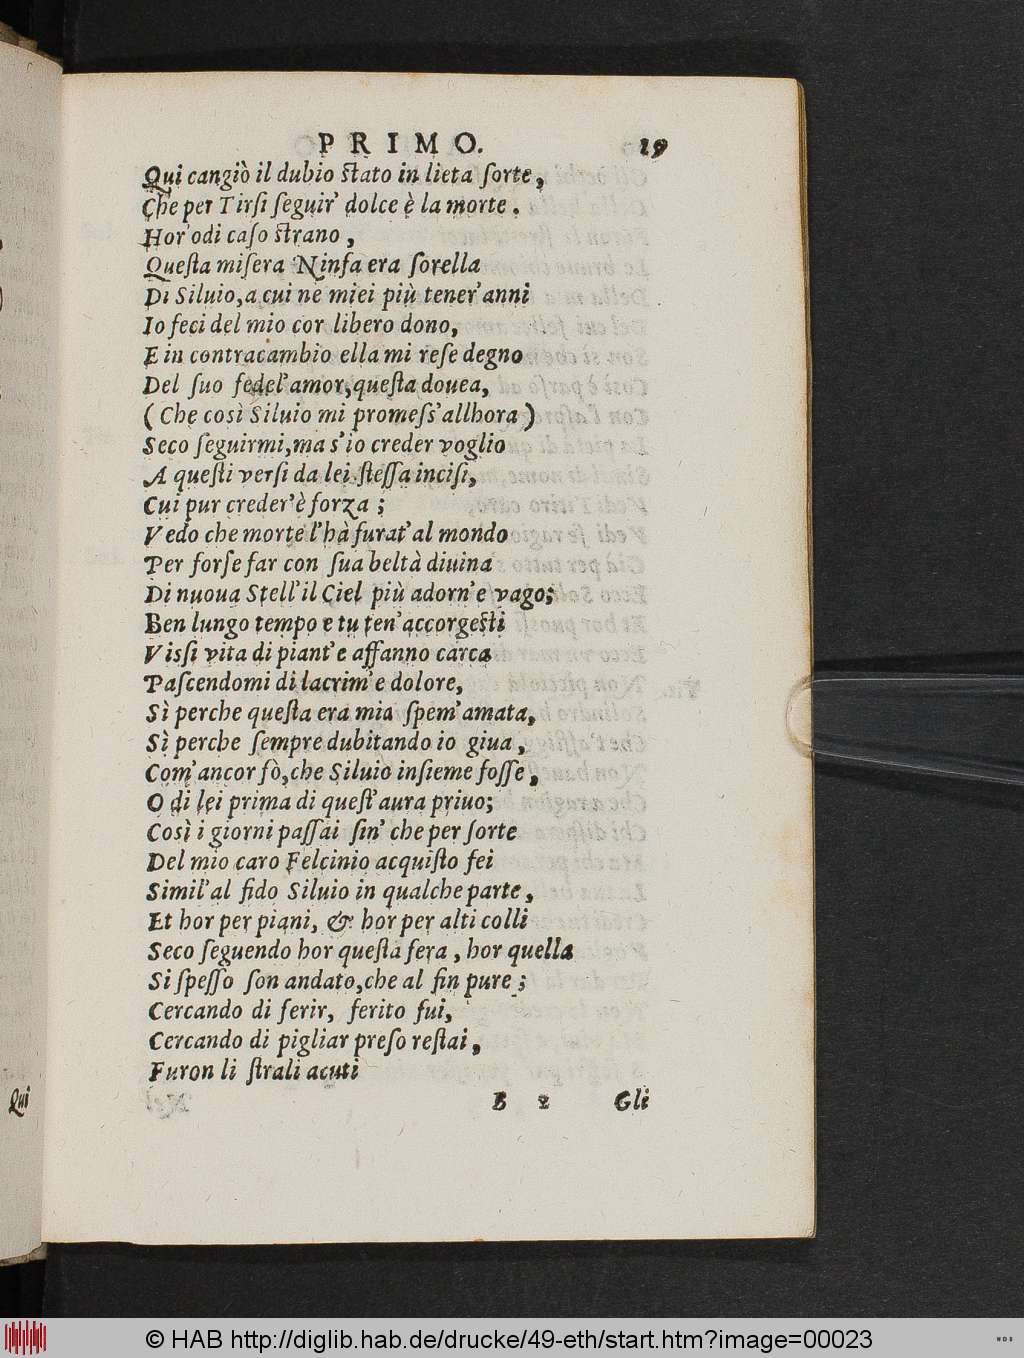 PRIMO. 19
Qui cangiò il dubio stato in lieta ſorte,
Che per Tirſi ſeguir' dolce è la morte.
Hor'odi caſo strano,
Queſta miſera Ninfa era ſorella
Di Siluio, a cui ne miei più tener'anni
Io feci del mio cor libero dono,
E in contracambio ella mi reſe degno
Del ſuo fedel'amor, queſta douea,
(Che così Siluio mi promeſs'allhora)
Seco ſeguirmi, ma s'io creder voglio
A queſti verſi da lei ſteſſa inciſi,
Cui pur creder'è forza;
Vedo che morte l'hà furat'al mondo
Per forſe far con ſua beltà diuina
Di nuoua Stell'il Ciel più adorn'e vago;
Ben lungo tempo e tu ten'accorgesti
Viſſi vita di piant'e affanno carca
Paſcendomi di lacrim'e dolore,
Sì perche queſta era mia ſpem'amata,
Sì perche ſempre dubitando io giua,
Com'ancor fò, che Siluio inſieme foſſe,
O di lei prima di queſt'aura priuo;
Così i giorni paſſai ſin' che per ſorte
Del mio caro Felcinio acquiſto fei
Simil'al fido Siluio in qualche parte,
Et hor per piani, & hor per alti colli
Seco ſeguendo hor queſta fera, hor quella
Si ſpeſſo ſon andato, che al fin pure;
Cercando di ferir, ferito fui,
Cercando di pigliar preſo reſtai,
Furon li ſtrali acuti
B 2 Gli
Qui
© HAB http://diglib.hab.de/drucke/49-eth/start.htm?image=00023